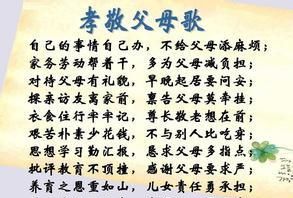 孝敬父母歌
自己的事情自己办，不给父母添麻烦；
家务劳动帮着干，多为父母减负担；
对待父母有礼貌，早晚起居要问安；
探亲访友离家前，禀告父母莫牵挂；
衣食住行牢牢记，尊长敬老想在前；
艰苦朴素少花钱，不与别人比吃穿；
思想学习勤汇报，恳求父母多指点；
批评教育不顶撞，感谢父母要求严；
养育之恩重如山，儿女责任勇承担；